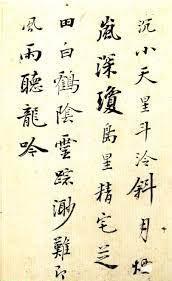 沉小天星斗冷斜月煙
嵐深瓊島星精宅芝
田白鶴陰雲踪渺難即
風雨聽龍吟